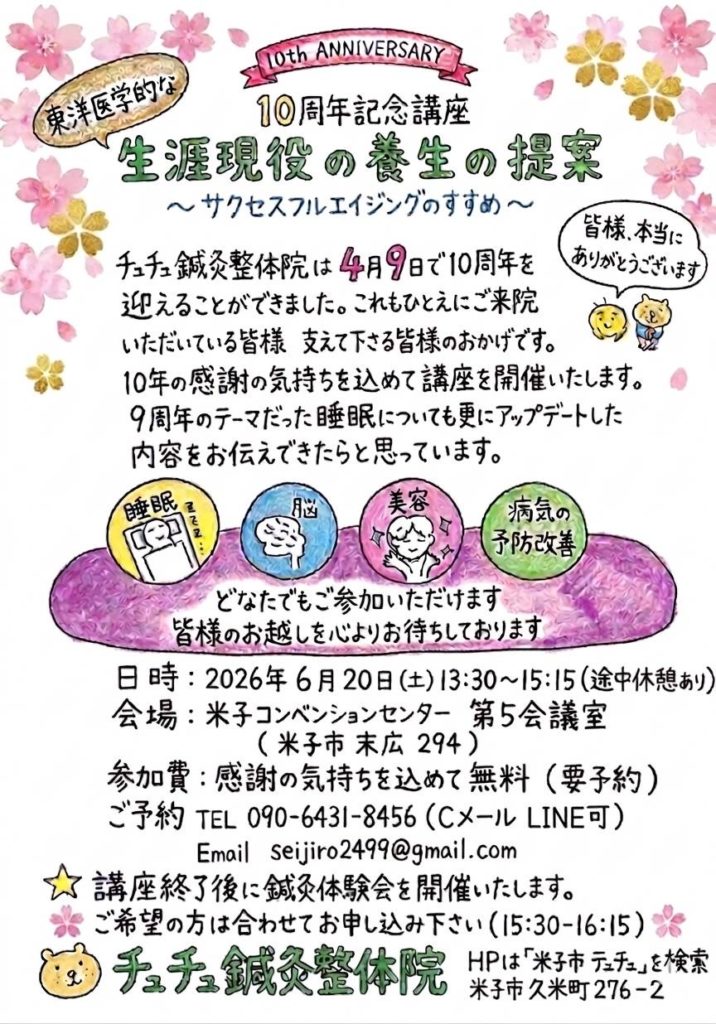 10th ANNIVERSARY
東洋医学的な
10周年記念講座
生涯現役の養生の提案
～サクセスフルエイジングのすすめ～
皆様、本当に
ありがとうございます
チュチュ鍼灸整体院は4月9日で10周年を
迎えることができました。これもひとえにご来院
いただいている皆様 支えて下さる皆様のおかげです。
10年の感謝の気持ちを込めて講座を開催いたします。
9周年のテーマだった睡眠についても更にアップデートした
内容をお伝えできたらと思っています。
睡眠
zzz...
脳
美容
病気の
予防改善
どなたでもご参加いただけます
皆様のお越しを心よりお待ちしております
日時：2026年6月20日(土)13:30～15:15(途中休憩あり)
会場：米子コンベンションセンター 第5会議室
(米子市 末広 294)
参加費：感謝の気持ちを込めて無料(要予約)
ご予約 TEL 090-6431-8456(Cメール LINE可)
Email seijiro2499@gmail.com
講座終了後に鍼灸体験会を開催いたします。
ご希望の方は合わせてお申し込み下さい(15:30-16:15)
チュチュ鍼灸整体院
HPは「米子市 チュチュ」を検索
米子市久米町276-2